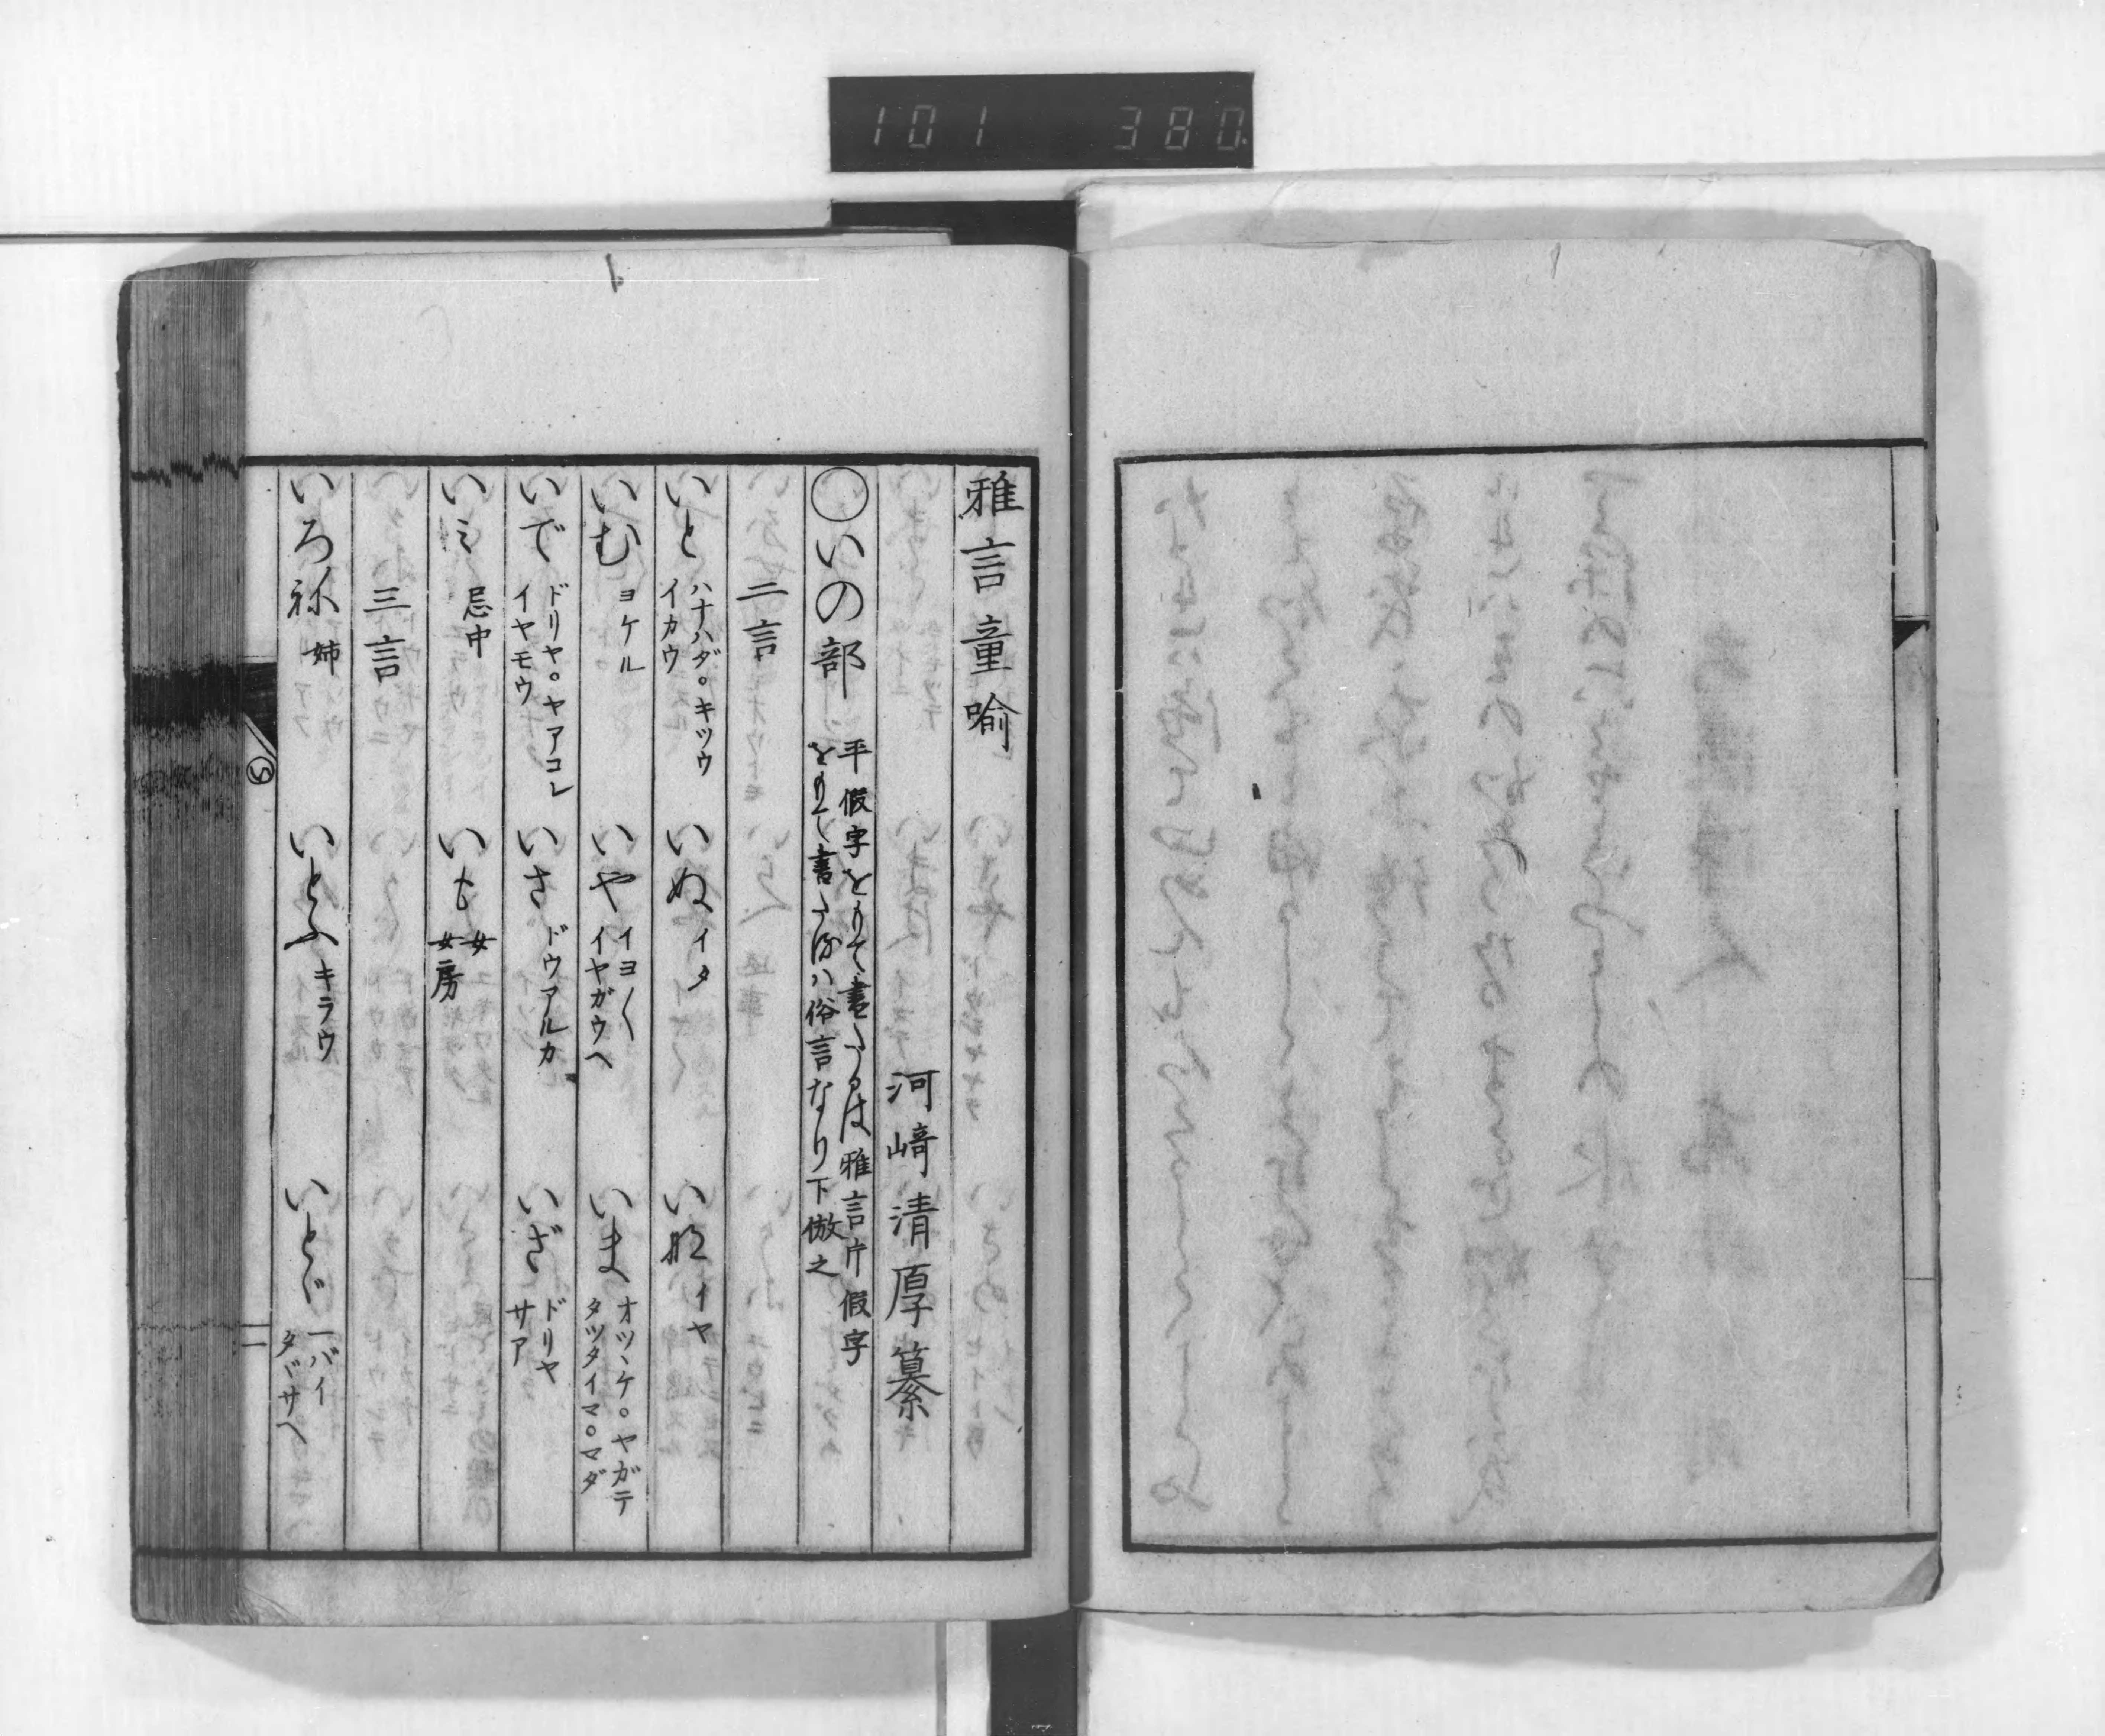 101 380
雅言童喩
河﨑清厚纂
〇いの部 平假字をもて書たるは雅言片假字
をもて書たるハ俗言なり下倣之
二言
いと ハナハダ。キツウ イカウ いぬ イタ い那 イヤ
いむ ヨケル いや イヨ〱 イヤガウヘ いま オツヽケ。ヤガテ タツタイマ。マダ
いで ドリヤ。ヤアコレ イヤモウ いさ ドウアルカ いざ ドリヤ サア
いミ 忌中 いも 女 女房
三言
いろね 姉 いとふ キラウ いとゞ 一バイ タバサヘ
い
二